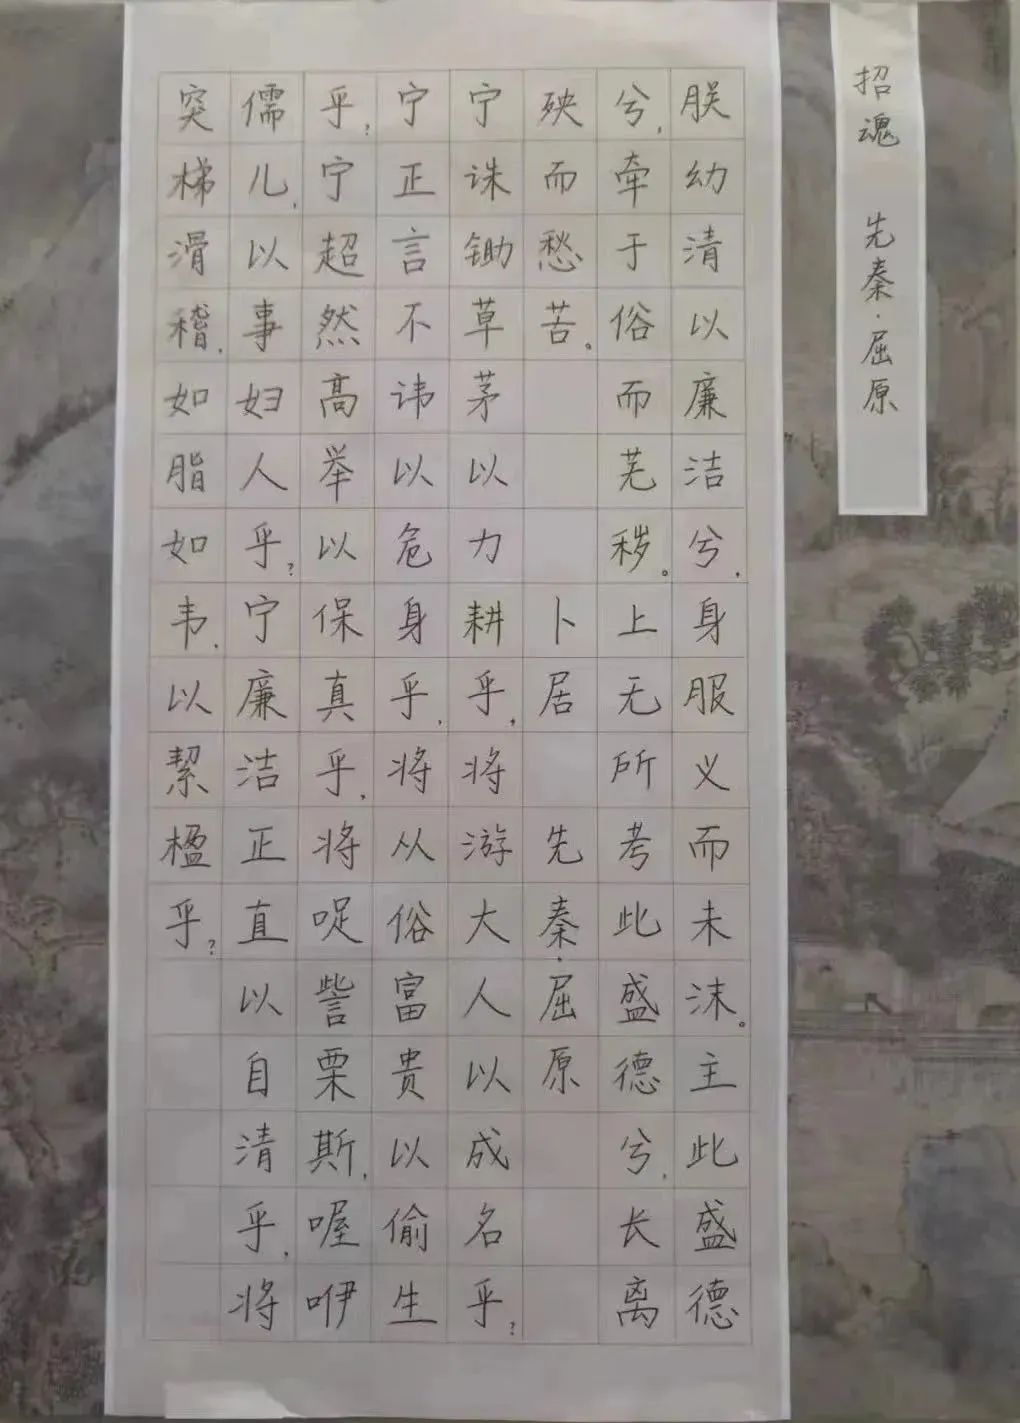 招魂 先秦·屈原
朕幼清以廉洁兮,身服义而未沫。主此盛德
兮,牵于俗而芜秽。上无所考此盛德兮,长离
殃而愁苦。 卜居 先秦·屈原
宁诛锄草茅以力耕乎,将游大人以成名乎?
宁正言不讳以危身乎,将从俗富贵以偷生
乎?宁超然高举以保真乎,将哫訾栗斯,喔咿
儒儿,以事妇人乎?宁廉洁正直以自清乎,将
突梯滑稽,如脂如韦,以絜楹乎?